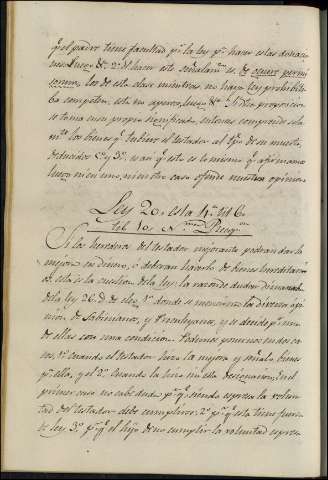 q.e el padre tiene facultad p.r la ley p.a hacer estas donacio-
nes. Luego &c. 2.º el hacer este señalam.to es de
los de esta clase mientras no haya Ley prohibitiva
competen: este no aparece, luego &c. Si la proposicion
se toma en su propio significado, entonces comprende sola-
m.te los bienes q.e tubiere el testador al tpo. de su muerte,
deducidos 
luego ni en uno, ni en otro caso ofende nuestra opinion.
Ley 20, esta h.a tit 6.
tit 10. N.
Si los herederos del testador mejorante podran dar la
mejora en dinero, ó deberan hacerlo de bienes hereditarios
es esta la cuestion de la ley: la razon de dudar dimana
de la ley 26. donde se menciona la diversa opi-
nion de Sabinianos, y Proculeyanos, y se decide p.r una
de ellas con una condicion. Podemos ponernos en dos ca-
sos, 1.º cuando el testador hizo la mejora y señaló bienes
p.a ella, y el 2.º cuando la hizo sin esta designacion. En el
primer caso no cabe duda p.r q.e siendo espresa la volun-
tad del testador debe cumplirse: 2.º p.r q.e esta tiene fuerza
de ley 3.º p.r q.e el hijo de no cumplir la voluntad espresa